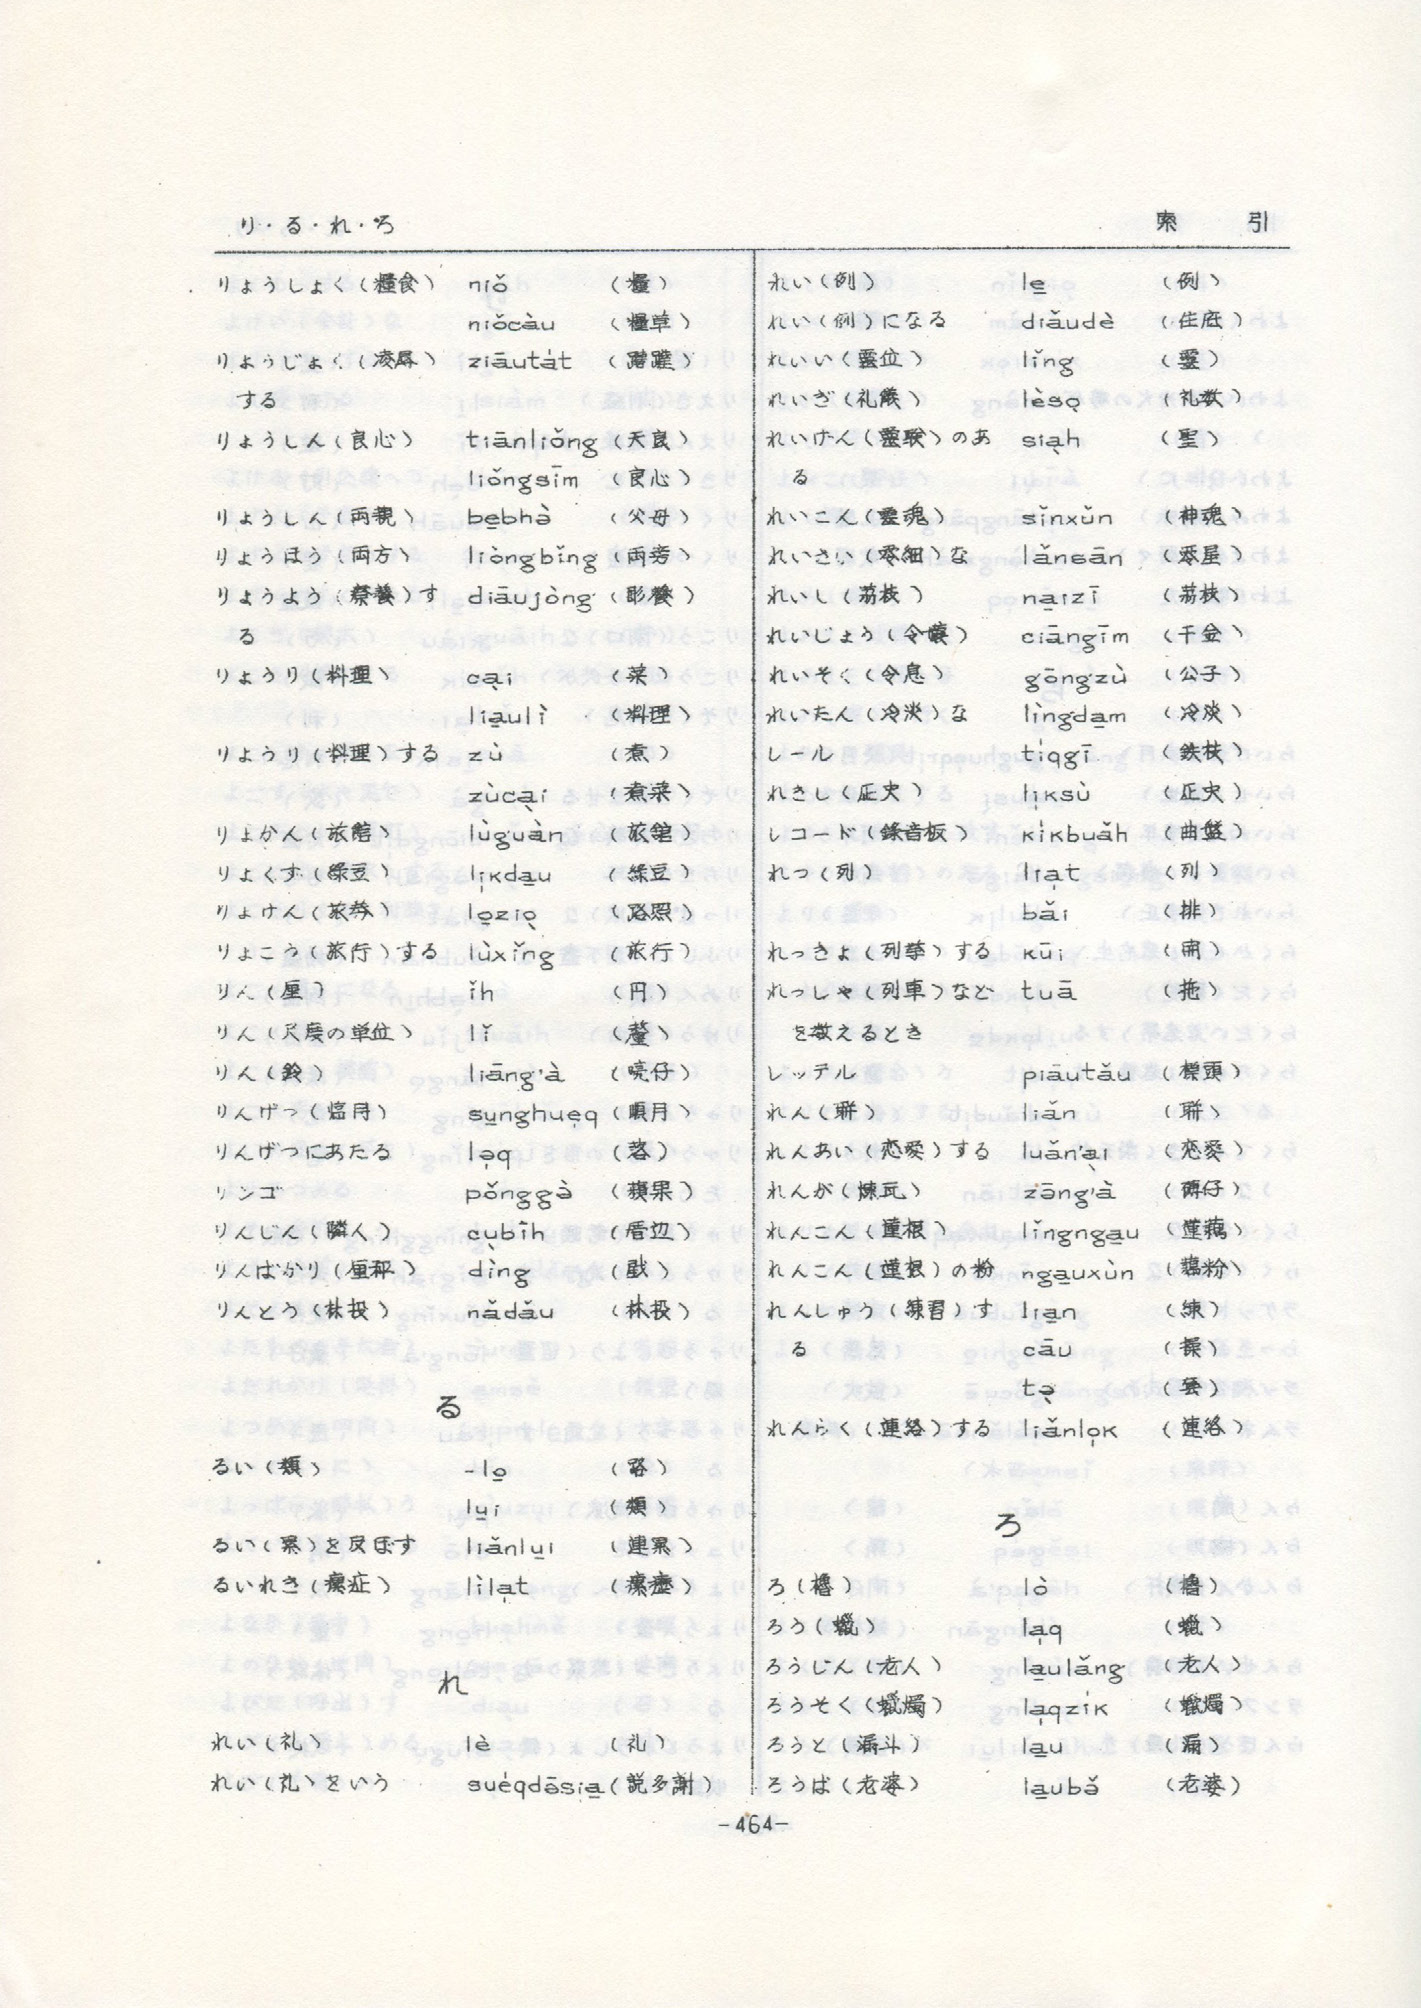 り・る・れ・ろ 索 引
りょうしょく(糧食) niǒ (糧)
niǒcàu (糧草)
りょうじょく(凌辱) ziāuta̍t (蹧蹥)
する
りょうしん(良心) tiānliǒng (天良)
liǒngsīm (良心)
りょうしん(両親) be̱bhà (父母)
りょうほう(両方) liòngbǐng (両旁)
りょうよう(療養)す diāujòng (彫養)
る
りょうり(料理) ca̱i (菜)
lia̱ulì (料理)
りょうり(料理)する zù (煮)
zùca̱i (煮菜)
りょかん(旅館) lùguàn (旅館)
りょくず(緑豆) lị̍kda̱u (緑豆)
りょけん(旅券) lo̱zio̱ (路照)
りょこう(旅行)する lùxǐng (旅行)
りん(厘) ǐh (円)
りん(尺度の単位) lǐ (釐)
りん(鈴) liāng'à (喨仔)
りんげつ(臨月) su̱nghuẹq (順月)
りんげつにあたる lạq (落)
リンゴ pǒnggà (蘋果)
りんじん(隣人) cùbīh (厝辺)
りんばかり(厘秤) dìng (戥)
りんとう(林投) nǎdǎu (林投)
る
るい(類) -lo̱ (路)
lu̱i (類)
るい(累)を及ぼす liǎnlu̱i (連累)
るいれき(瘰症) lìlạt (瘰癧)
れ
れい(礼) lè (礼)
れい(礼)をいう suéqdāsia̱ (説多謝)
れい(例) le̱ (例)
れい(例)になる diǎudè (住底)
れいい(霊位) lǐng (霊)
れいぎ(礼儀) lèso̱ (礼数)
れいけん(霊験)のあ sia̱h (聖)
る
れいこん(霊魂) sǐnxǔn (神魂)
れいさい(零細)な lǎnsān (零星)
れいし(茘枝) na̱izī (茘枝)
れいじょう(令嬢) ciāngīm (千金)
れいそく(令息) gōngzù (公子)
れいたん(冷淡)な lìngda̱m (冷淡)
レール tíqgī (鉄枝)
れきし(歴史) lịksù (歴史)
レコード(録音板) kíkbuǎh (曲盤)
れつ(列) liạt (列)
bǎi (排)
れっきょ(列挙)する kūi (開)
れっしゃ(列車)など tuā (拖)
を数えるとき
レッテル piāutǎu (標頭)
れん(聯) liǎn (聯)
れんあい(恋愛)する luǎn'a̱i (恋愛)
れんが(煉瓦) zāng'à (磚仔)
れんこん(蓮根) lǐngnga̱u (蓮藕)
れんこん(蓮根)の粉 nga̱uxùn (藕粉)
れんしゅう(練習)す lia̱n (練)
る cāu (操)
れんらく(連絡)する liǎnlọk (連絡)
ろ
ろ(櫓) lò (櫓)
ろう(蠟) lạq (蠟)
ろうじん(老人) la̱ulǎng (老人)
ろうそく(蠟燭) lạqzík (蠟燭)
ろうと(漏斗) la̱u (漏)
ろうば(老婆) la̱ubǎ (老婆)
-464-